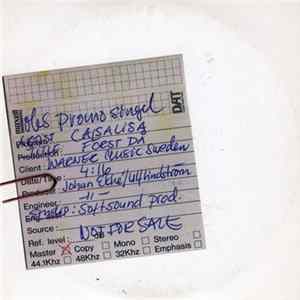 maxell
obs promosingel
DAT
Program ARTIST CASALISA
Production TITLE FÖRST DÅ
Client: WARNER MUSIC Sweden
Date/Time 4:16
Johan Ekhé/Ulf Lindström
Engineer — 11 —
Softsound prod.
Source: NOT FOR SALE
Ref. level:
Master Copy Mono Stereo
44.1Khz 48Khz 32Khz Emphasis